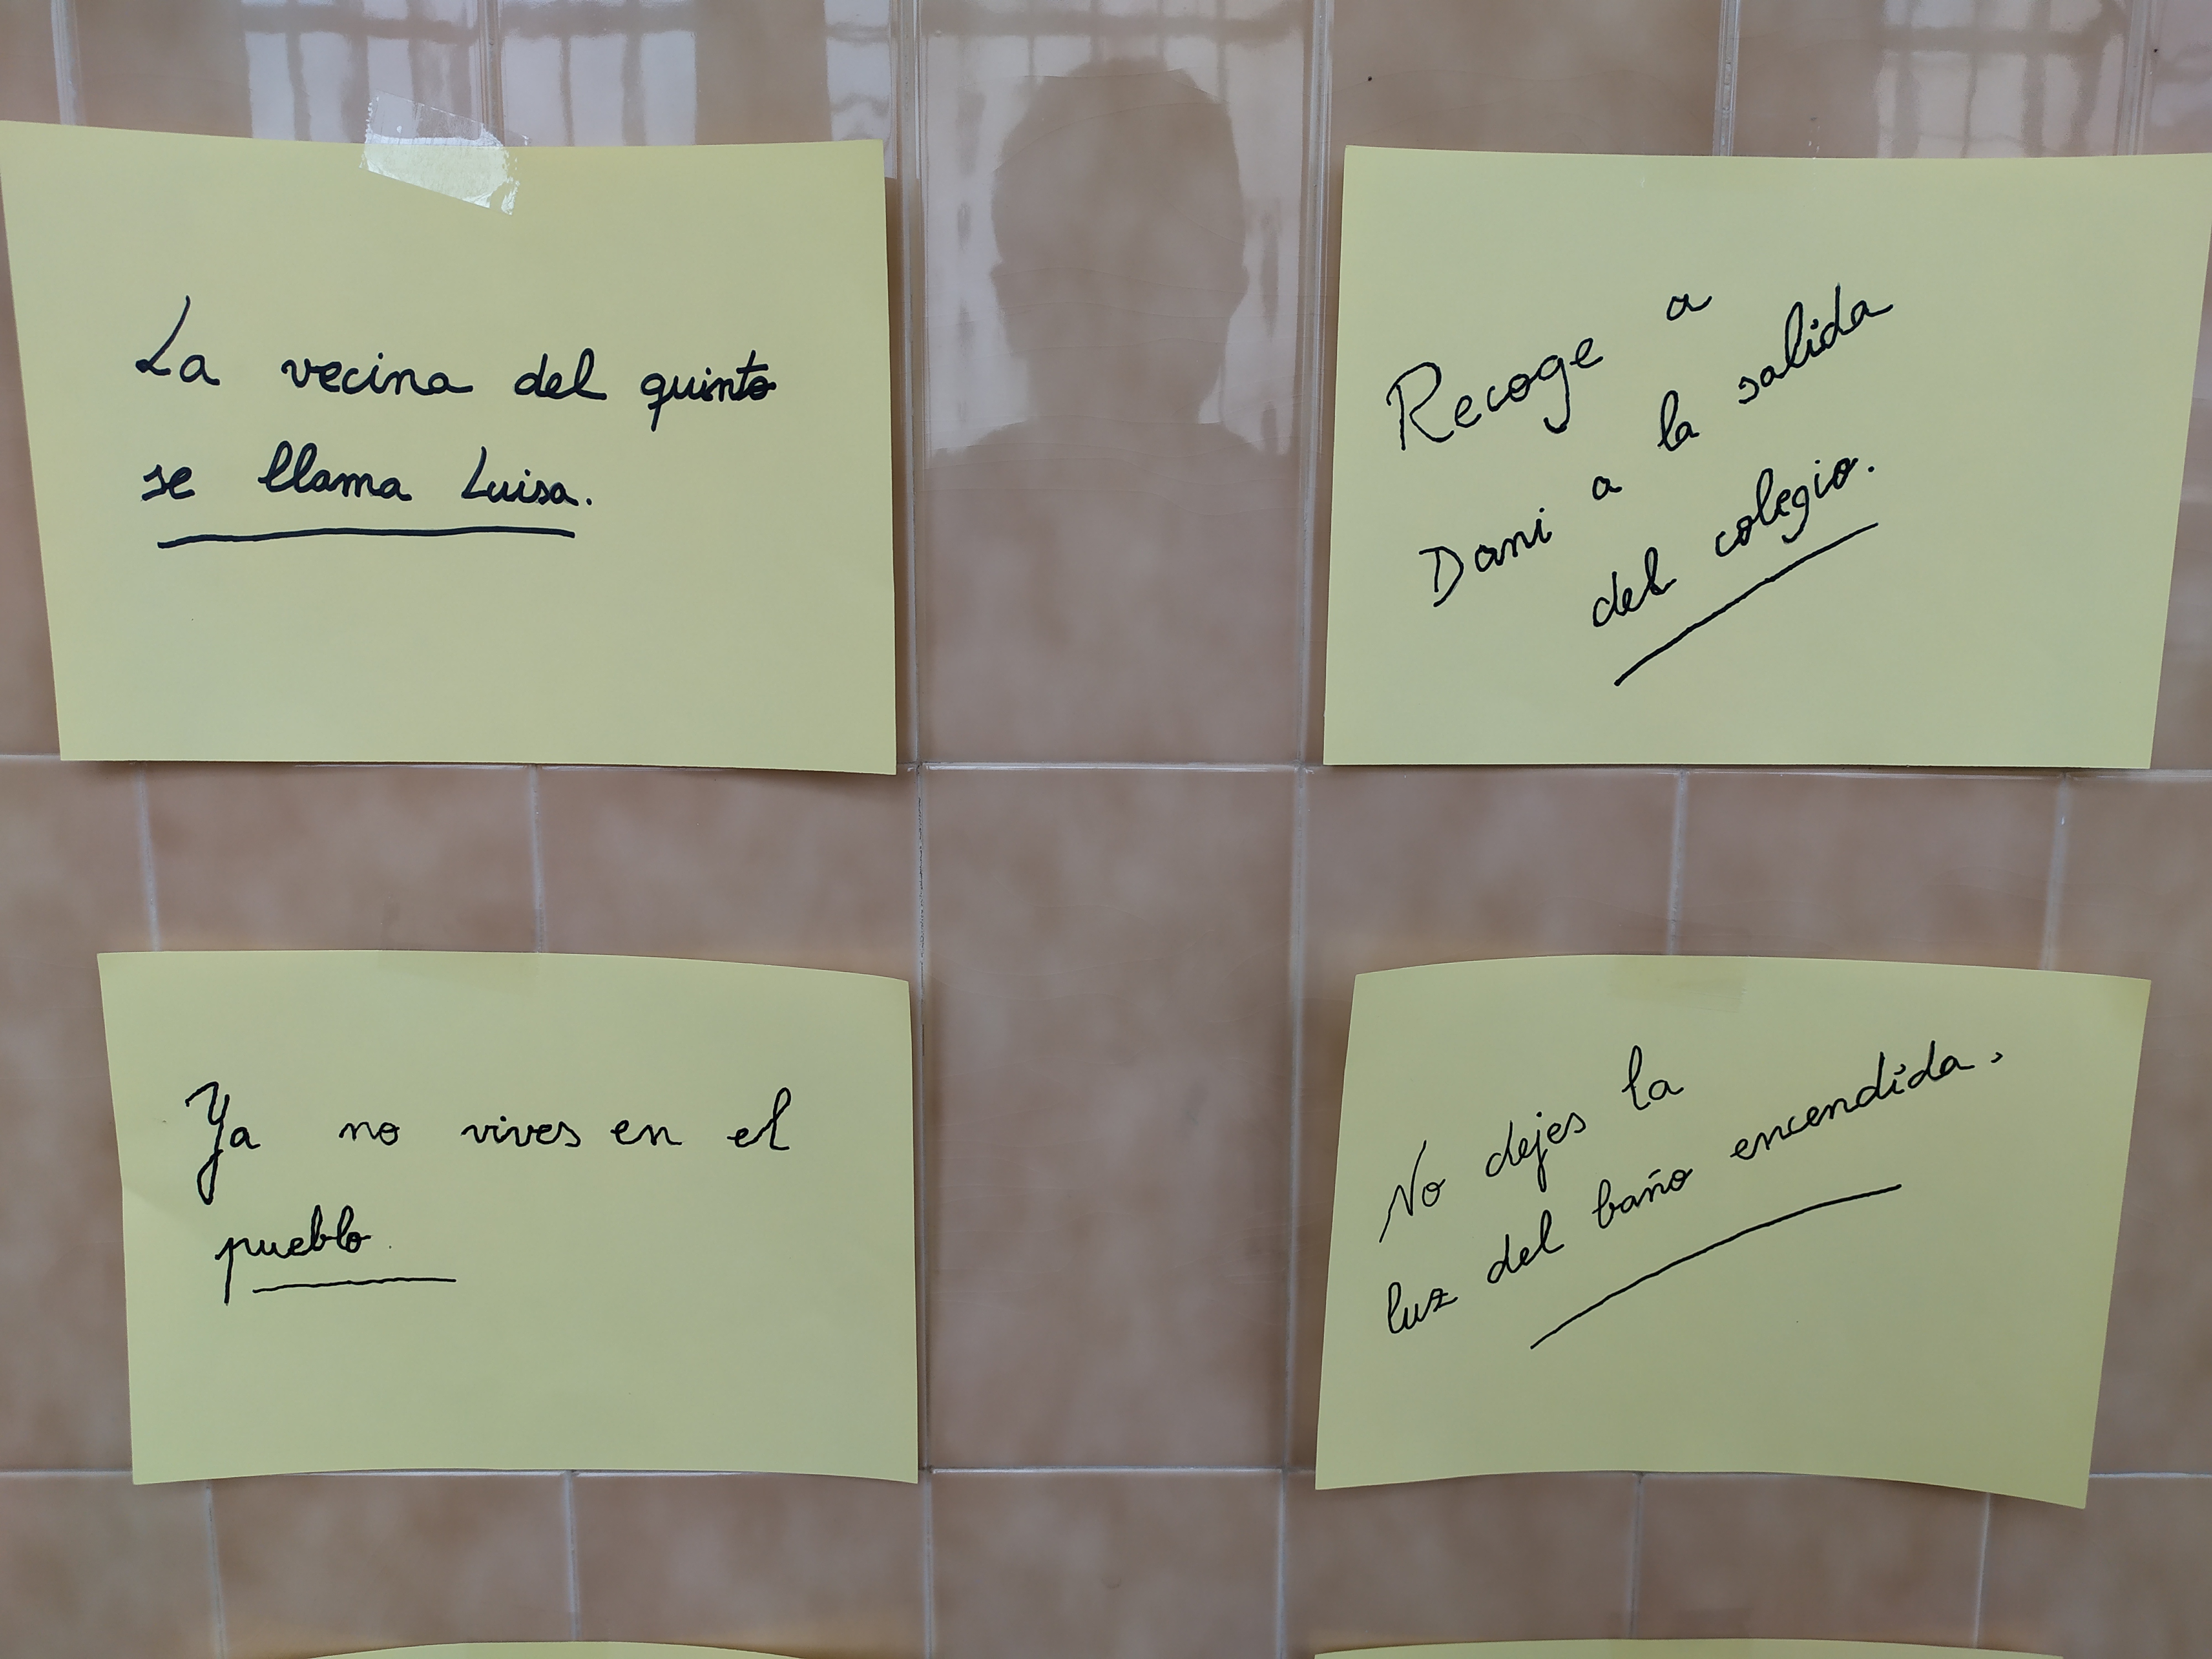 La vecina del quinto
se llama Luisa.
Recoge a
Dani a la salida
del colegio.
Ya no vives en el
pueblo.
No dejes la
luz del baño encendida.